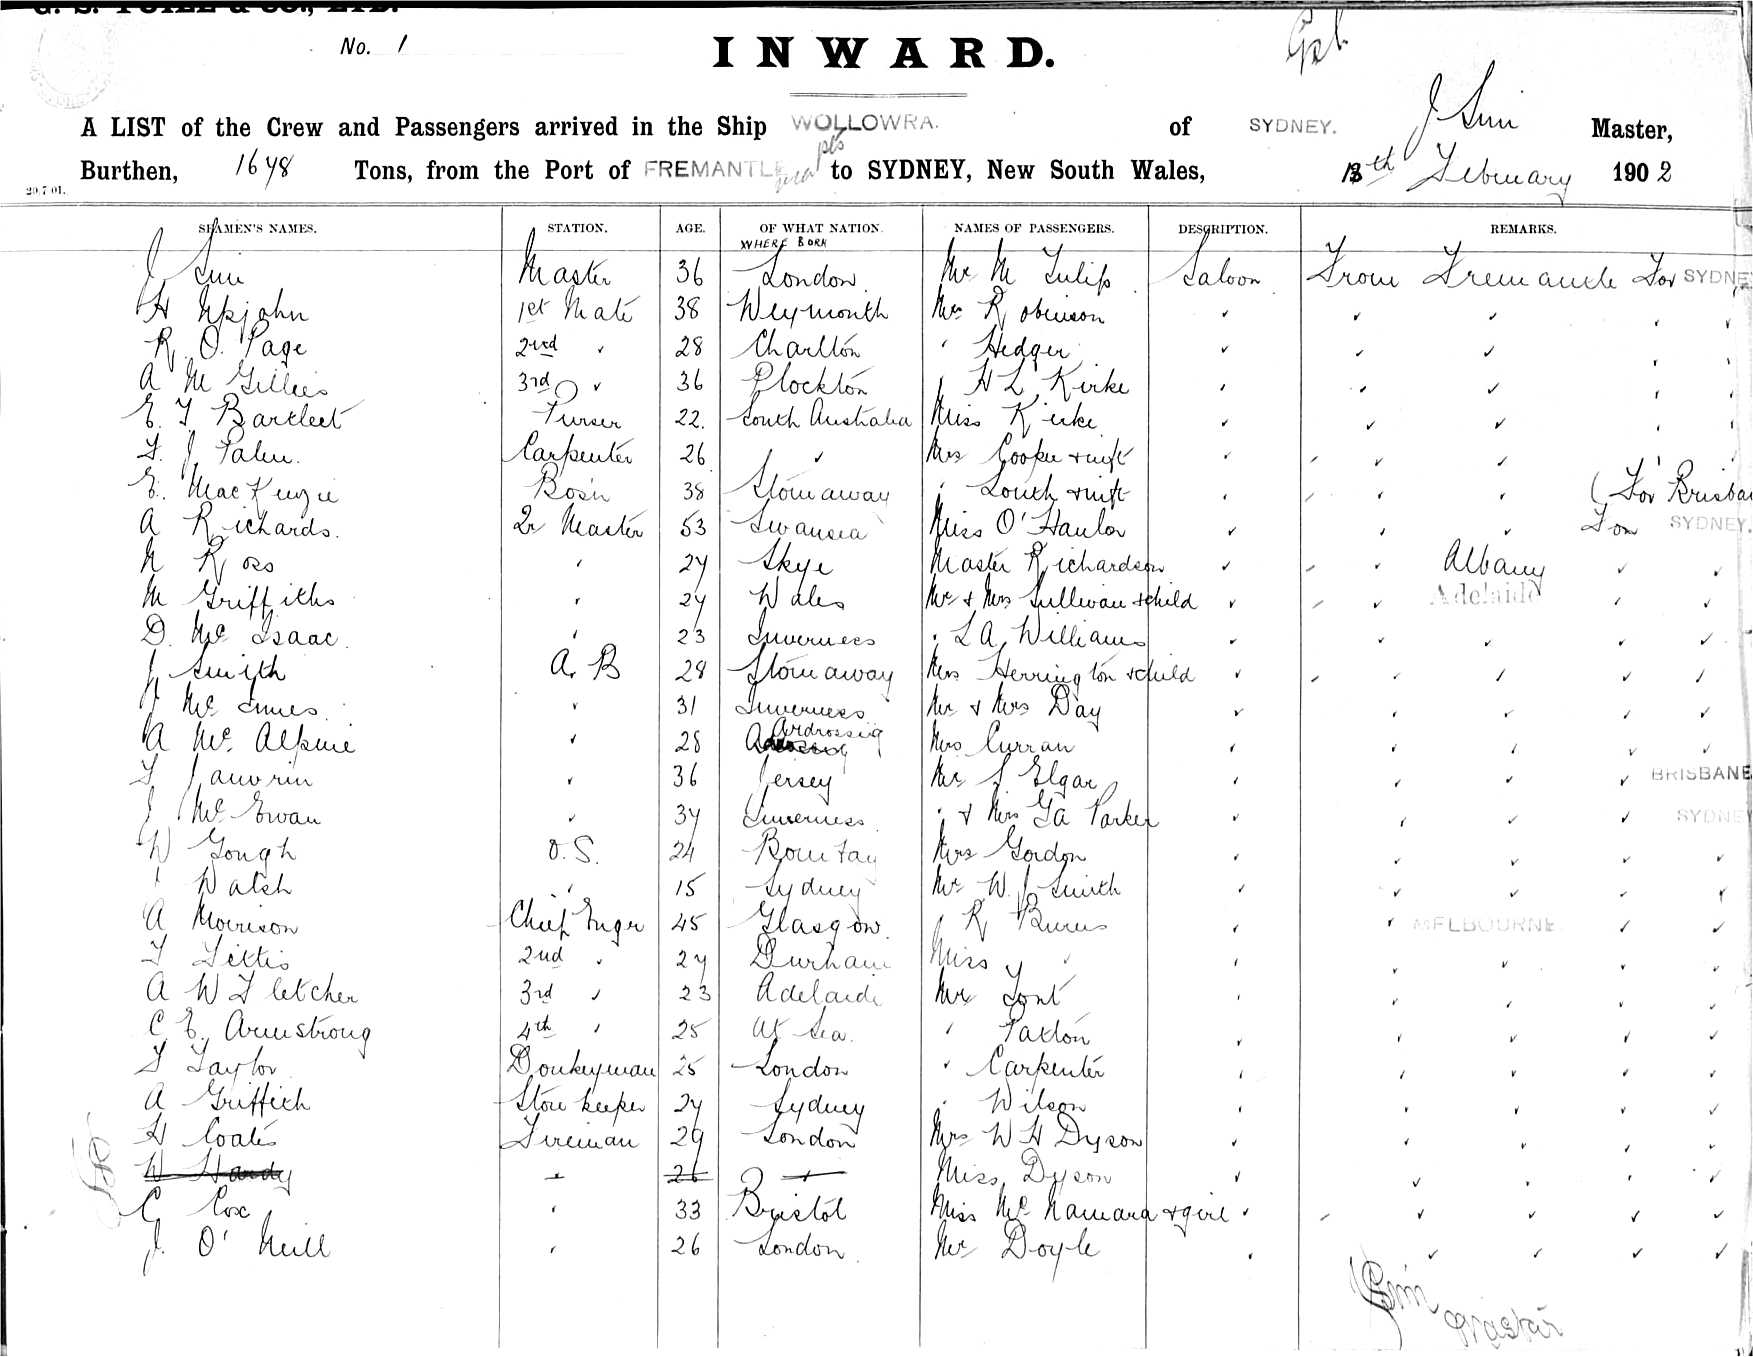 G. S. YUILL & CO., LTD.
No. 1
INWARD.
A LIST of the Crew and Passengers arrived in the Ship WOLLOWRA. of SYDNEY. J Sim Master,
Burthen, 1648 Tons, from the Port of FREMANTLE via pts to SYDNEY, New South Wales, 13th February 1902
20.7.01.
SEAMEN'S NAMES. STATION. AGE. OF WHAT NATION. NAMES OF PASSENGERS. DESCRIPTION. REMARKS.
WHERE BORN
J Sim Master 36 London Mr M Tulip Saloon From Fremantle For SYDNEY
H Upjohn 1st Mate 38 Weymouth Mr Robinson
R. O. Page 2nd " 28 Charlton " Hedger
A McGillies 3rd " 36 Plockton " H L Kirke
E. T Bartleet Purser 22. South Australia Miss Kirke
F. J Palm. Carpenter 26 " Mrs Cooper & inft
E. MacKenzie Bosn 38 Stornaway " South & inft (For Brisbane
A Richards. Qr Master 53 Swansea Miss O'Hanlon For SYDNEY.
N Ross " 24 Skye Master Richardson Albany
M Griffiths " 24 Wales Mr & Mrs Sullivan & child Adelaide
D. McIsaac. " 23 Inverness " L A Williams
J Smith A. B 28 Stornaway Mrs Herrington & child
J McInnes " 31 Inverness Mr & Mrs Day
A McAlpine " 28 Ardrossig Mrs Curran
F Jauvrin " 36 Jersey Mr S Elgar BRISBANE
J McEwan " 34 Inverness " & Mrs G A Parker SYDNEY
W Gough O. S. 24 Bombay Mrs Gordon
J Walsh " 15 Sydney Mr W J Smith
A Morrison Chief Engr 45 Glasgow. " R Burns MELBOURNE.
T Tettis 2nd " 24 Durham Miss "
A W Fletcher 3rd " 23 Adelaide Mr Font
C E. Armstrong 4th " 25 At Sea. " Paxton
F Taylor Donkeyman 25 London " Carpenter
A Griffith Store keeper 24 Sydney " Wilson
H Coates Fireman 29 London Mrs W H Dyson
W Handy " 26 " Miss Dyson
C Cox " 33 Bristol Miss McNamara & girl
J. O'Neill " 26 London Mr Doyle
J Sim
Master